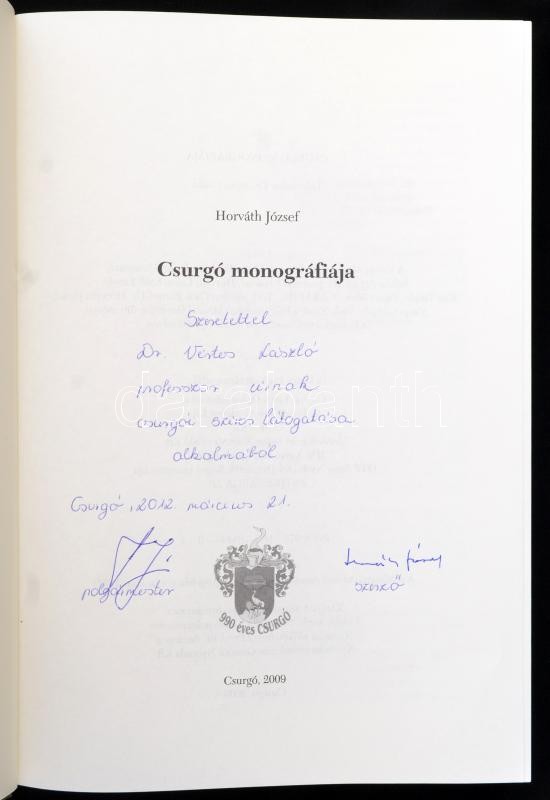 Horváth József
Csurgó monográfiája
Szeretettel
Dr. Vértes László
professzor úrnak
csurgói szíves látogatása
alkalmából
Csurgó, 2012. március 21.
polgármester
szerző
990 éves CSURGÓ
Csurgó, 2009
darabanth